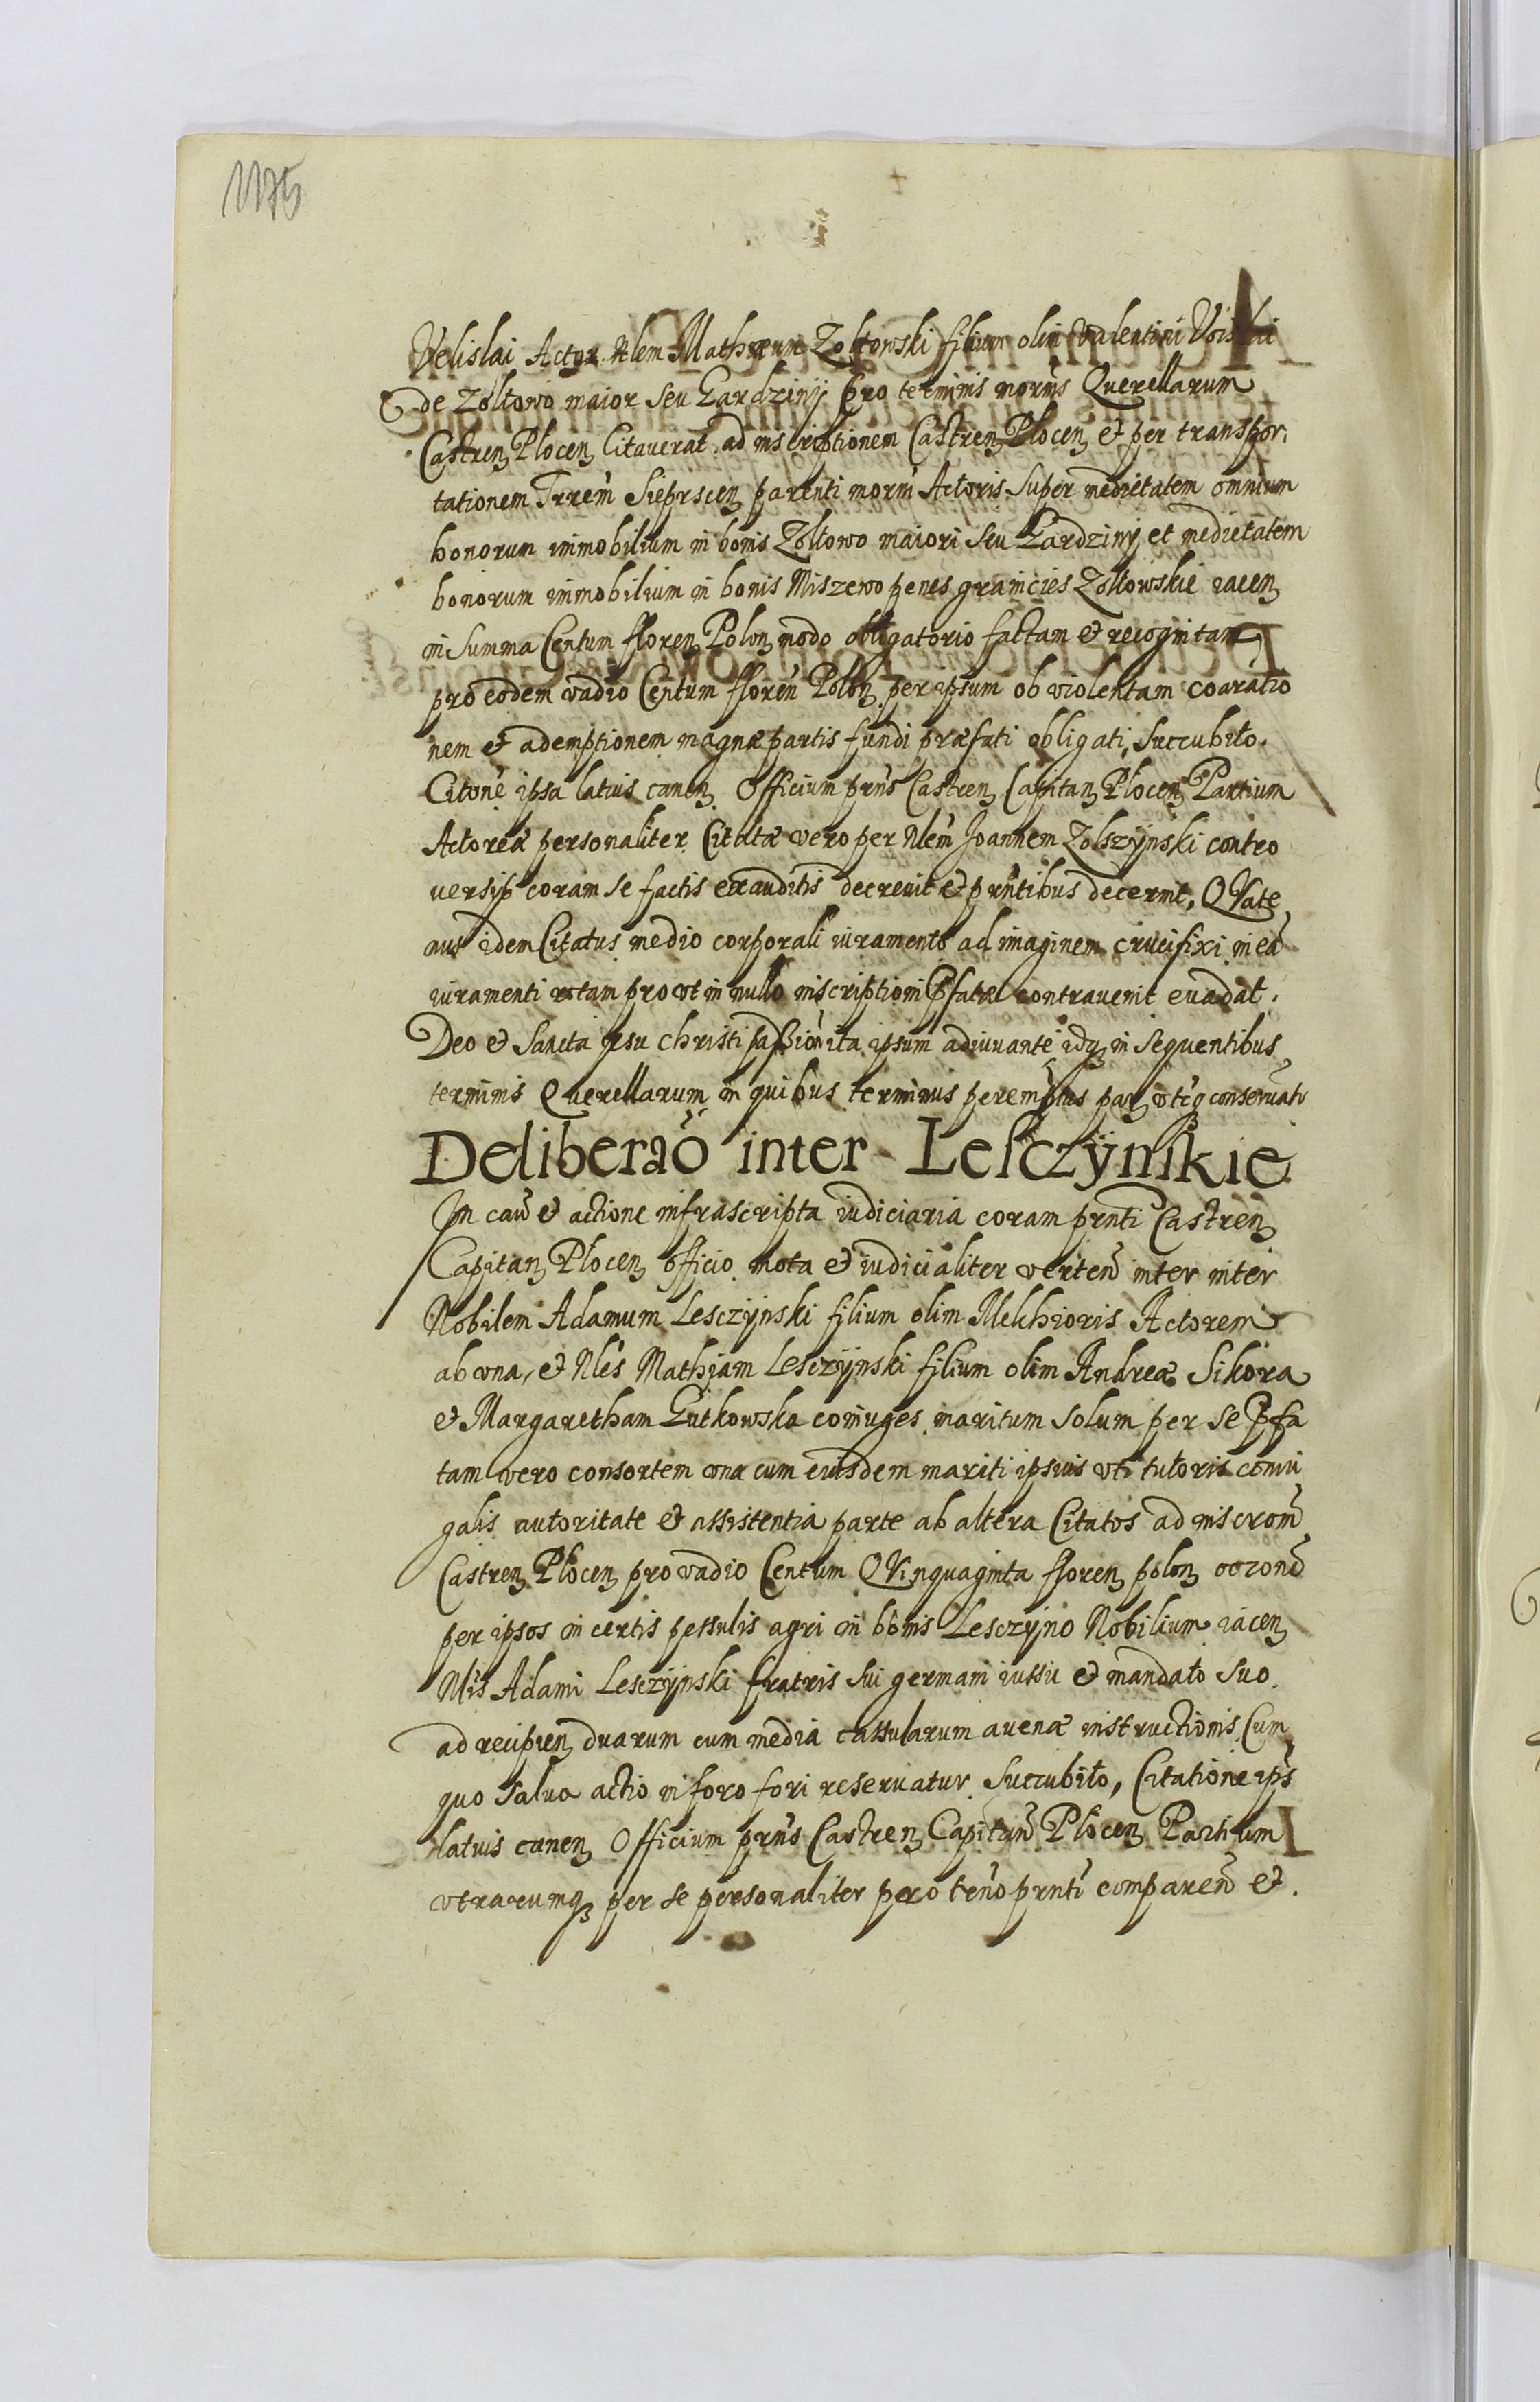 1175
Velislai Actor Nlem Mathæum Zołtowski filium olim Valentini Voislai
de Zołtowo maior seu Gardziny pro terminis Querellarum
Castren Plocen Citaverat ad inscriptionem Castren Plocen et per transpor,
tationem Trrem parenti Actoris super medietatem omnium
bonorum immobilium in bonis Zołtowo maiori seu Gardziny et medietatem
bonorum immobilium in bonis Miszewo penes granicies Zołtowskie iacen
in summa Centum floren Polon modo obligatorio factam et recognitam
pro eodem vadio Centum floren Polon per ipsum ob violentam coaratio
nem et ademptionem magnæ partis fundi præfati obligati, succubito.
Citone ipsa latius canen Officium prns Castren Capitan Plocen Partium
Actoreæ personaliter Citatæ vero per Nlem Joannem Zolszynski contro
versys coram se factis exauditis decrevit et prntibus decernit, QVate
nus idem Citatus medio corporali iuramento ad imaginem crucifixi in ea
iuramenti rotam prout in nullo inscriptioni pfatæ contravenit evadat.
Deo et Sancta Jesu christi passione ita ipsum adiuvante idq in sequentibus
terminis Querellarum in quibus terminus peremptus par conservatr
Deliberao inter Lesczynskie
In cau et actione infrascripta iudiciaria coram prnti Castren
Capitan Plocen officio mota et iudicialiter verten inter inter
Nobilem Adamum Lesczynski filium olim Melchioris Actorem
ab vna, et Nles Mathiam Lesczynski filium olim Andreæ Sikora
et Margaretham Gutkowska coniuges maritum solum per se pfa
tam vero consortem vna cum eiusdem mariti ipsius vti tutoris coniu
galis autoritate et assistentia parte ab altera Citatos ad inscrom
Castren Plocen pro vadio Centum QVinquaginta floren polon occone
per ipsos in certis pessulis agri in bonis Lesczyno Nobilium iacen
Nlis Adami Lesczynski fratris sui germani iussu et mandato suo
ad recipien duarum cum media cassularum avenæ instructionis Cum
quo salva actio in foro fori reservatur succubito, Citatione ips
latius canen Officium prns Castren Capitan Plocen Partium
vtrarumq per se personaliter pero teno prnti comparen et.